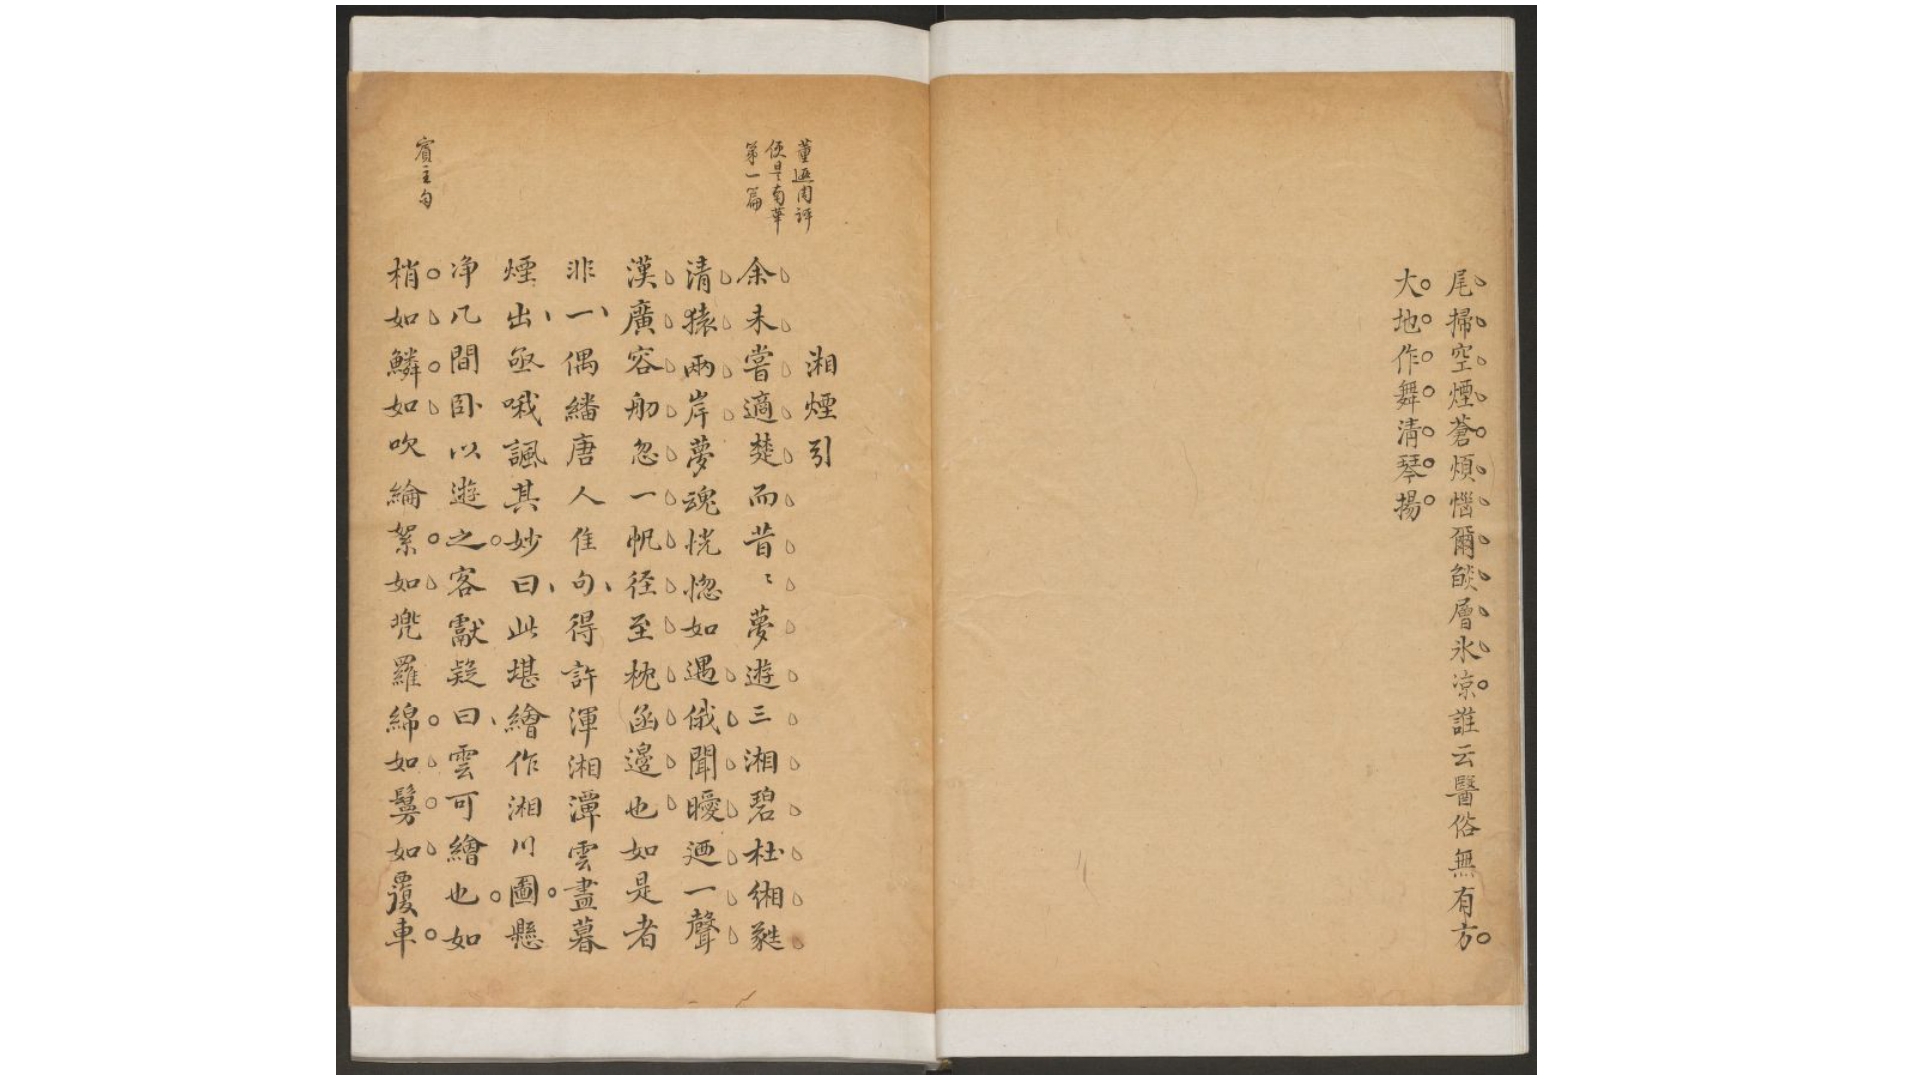 尾掃空煙蒼煩惱爾㷔層氷凉誰云醫俗無有方
大地作舞清琴揚
董遐周評
便是南華
第一篇
湘煙引
余未嘗適楚而昔〻夢遊三湘碧杜緗蕤
清猿兩岸夢魂恍惚如遇俄聞曖迺一聲
漢廣容舠忽一帆径至枕函邊也如是者
非一偶繙唐人隹句得許渾湘潭雲盡暮
煙出亟哦諷其妙曰此堪繪作湘川圖懸
净几間卧以遊之客獻疑曰雲可繪也如
賓主句
梢如鱗如吹綸絮如兠羅綿如鬈如覆車